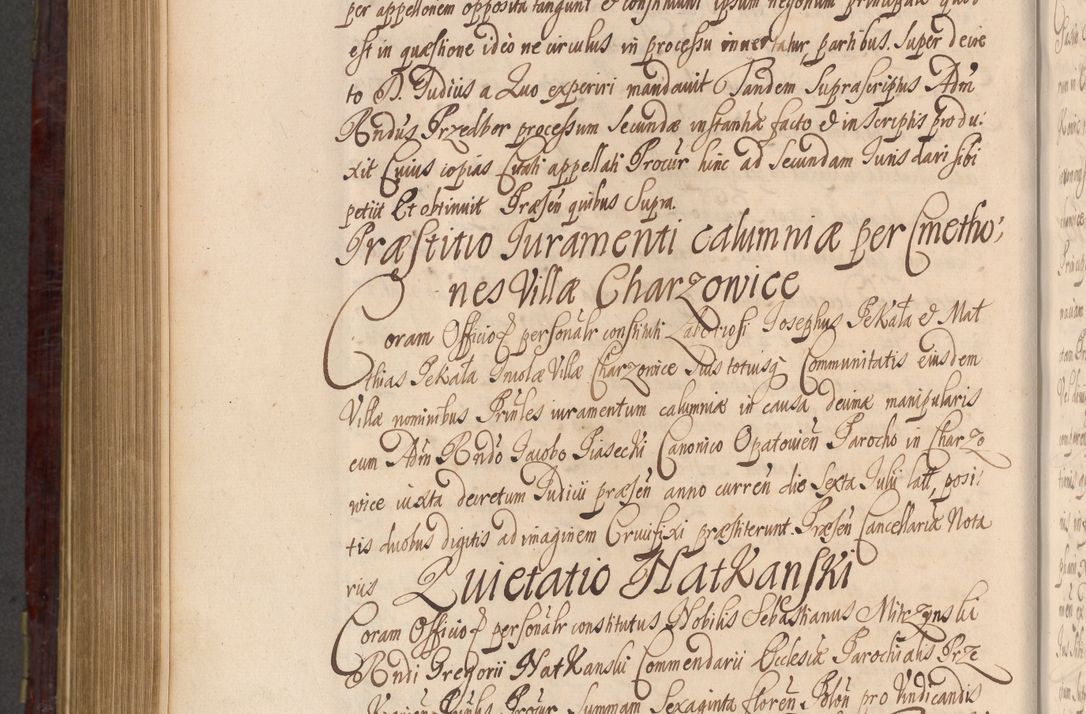 per appellonem opposita tangunt et constituunt ipsum negotium principale quod
est in quæstione ideo ne circulus in processu innectatur, partibus super decre
to D. Iudicis a Quo experiri mandavit Tandem Suprascriptus Adm
Rndus Przedbor processum secundæ instantiæ facto et in scriptis produ:
xit Cuius copias Citati appellati Procur hinc ad secundam Iuris dari sibi
petiit Et obtinuit Præsen quibus Supra.
Præstitio Iuramenti calumniæ per Cmetho:
nes Villæ Charzowice
Coram Officioq personalr constituti Laboriosi Iosephus Pekala et Mat
thias Pekala Incolæ Villæ Charzowice suis totiusq Communitatis eiusdem
Villæ nominibus Prinles iuramentum calumniæ in causa decimæ manipularis
cum Adm Rndo Iacobo Piasecki Canonico Opatovien Parocho in Charzo
wice iuxta decretum Iudicii præsen anno curren die Sexta Iulii latt, posi:
tis duobus digitis ad imaginem Crucifixi præstiterunt. Præsen Cancellariæ Nota
rius
Quietatio Natkanski
Coram Officioq personalr constitutus Nobilis Sebastianus Mitrzynski
Rndi Gregorii Natkanski Commendarii Ecclesiæ Parochialis Prze
Prinlis Procur summam Sexaginta floren Polon pro Vindicandis